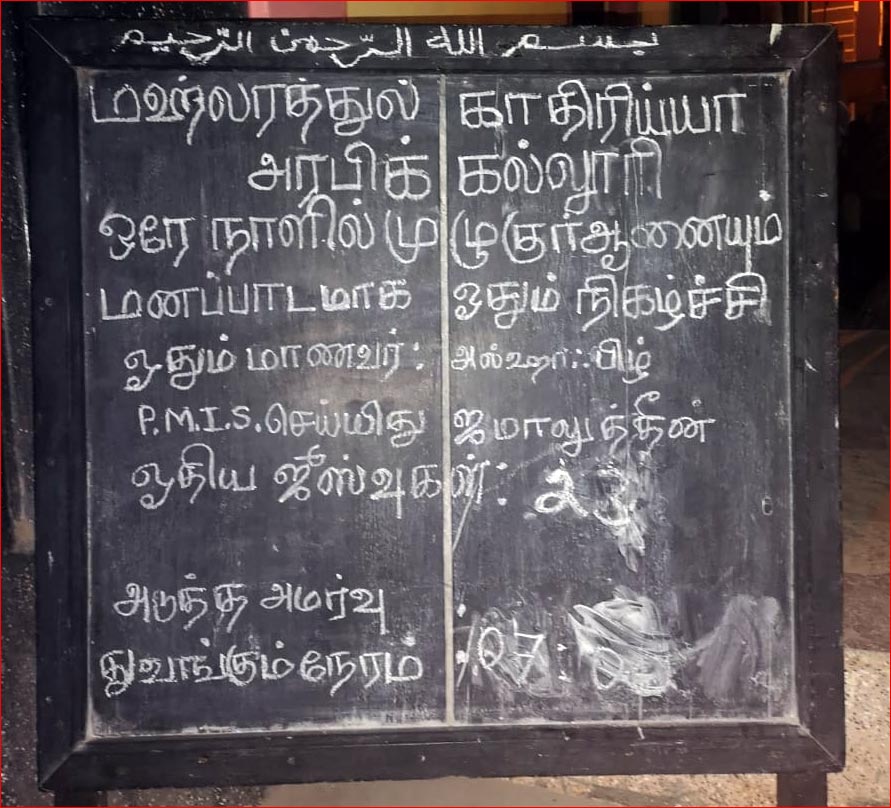 بسم الله الرحمن الرحيم
மஹ்லரத்துல் காதிரிய்யா
அரபிக் கல்லூரி
ஒரே நாளில் முழு குர்ஆனையும்
மனப்பாடமாக ஓதும் நிகழ்ச்சி
ஓதும் மாணவர் : அல்ஹாஃபிழ்
P.M.I.S. செய்யிது ஜமாலுத்தீன்
ஓதிய ஜீஸ்வுகள் : 23
அடுத்த அமர்வு
துவாங்கும் நேரம் : 07 :